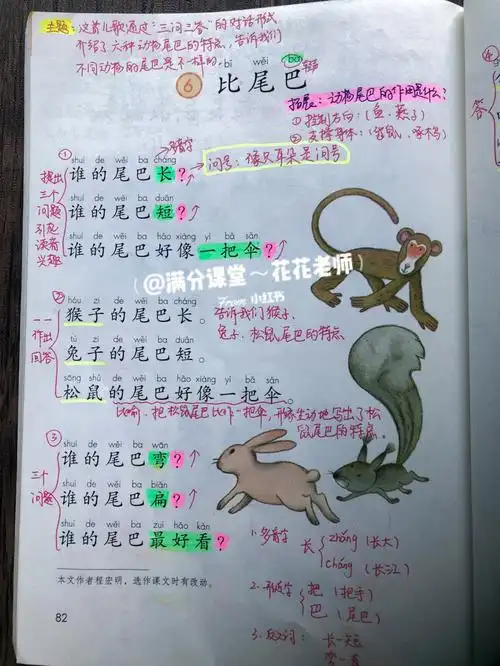 主题：这首儿歌通过"三问三答"的对话形式
介绍了六种动物尾巴的特点，告诉我们
不同动物的尾巴是不一样的。
bǐ wěi ba
6 比尾巴
轻声
拓展：动物尾巴的作用是什么？
①控制方向：(鱼、燕子)
②支撑身体：(袋鼠、啄木鸟)
④
答
多音字
问号：像只耳朵是问号
①
提出
三个
问题
引起
读者
兴趣
shuí de wěi ba cháng
谁的尾巴长？
shuí de wěi ba duǎn
谁的尾巴短？
shuí de wěi ba hǎo xiàng yì bǎ sǎn
谁的尾巴好像一把伞？
@满分课堂～花花老师
From 小红书
②
一一
作出
回答
hóu zi de wěi ba cháng
猴子的尾巴长。
告诉我们猴子、
兔子、松鼠尾巴的特点
tù zi de wěi ba duǎn
兔子的尾巴短。
sōng shǔ de wěi ba hǎo xiàng yì bǎ sǎn
松鼠的尾巴好像一把伞。
比喻：把松鼠尾巴比作一把伞，形象生动地写出了松
鼠尾巴的特点。
③
三个
问题
shuí de wěi ba wān
谁的尾巴弯？
shuí de wěi ba biǎn
谁的尾巴扁？
shuí de wěi ba zuì hǎo kàn
谁的尾巴最好看？
1.多音字
长
zhǎng (长大)
cháng (长江)
2.形近字
把 (把手)
巴 (尾巴)
3.反义词：
长—短
弯—直
本文作者程宏明，选作课文时有改动。
82